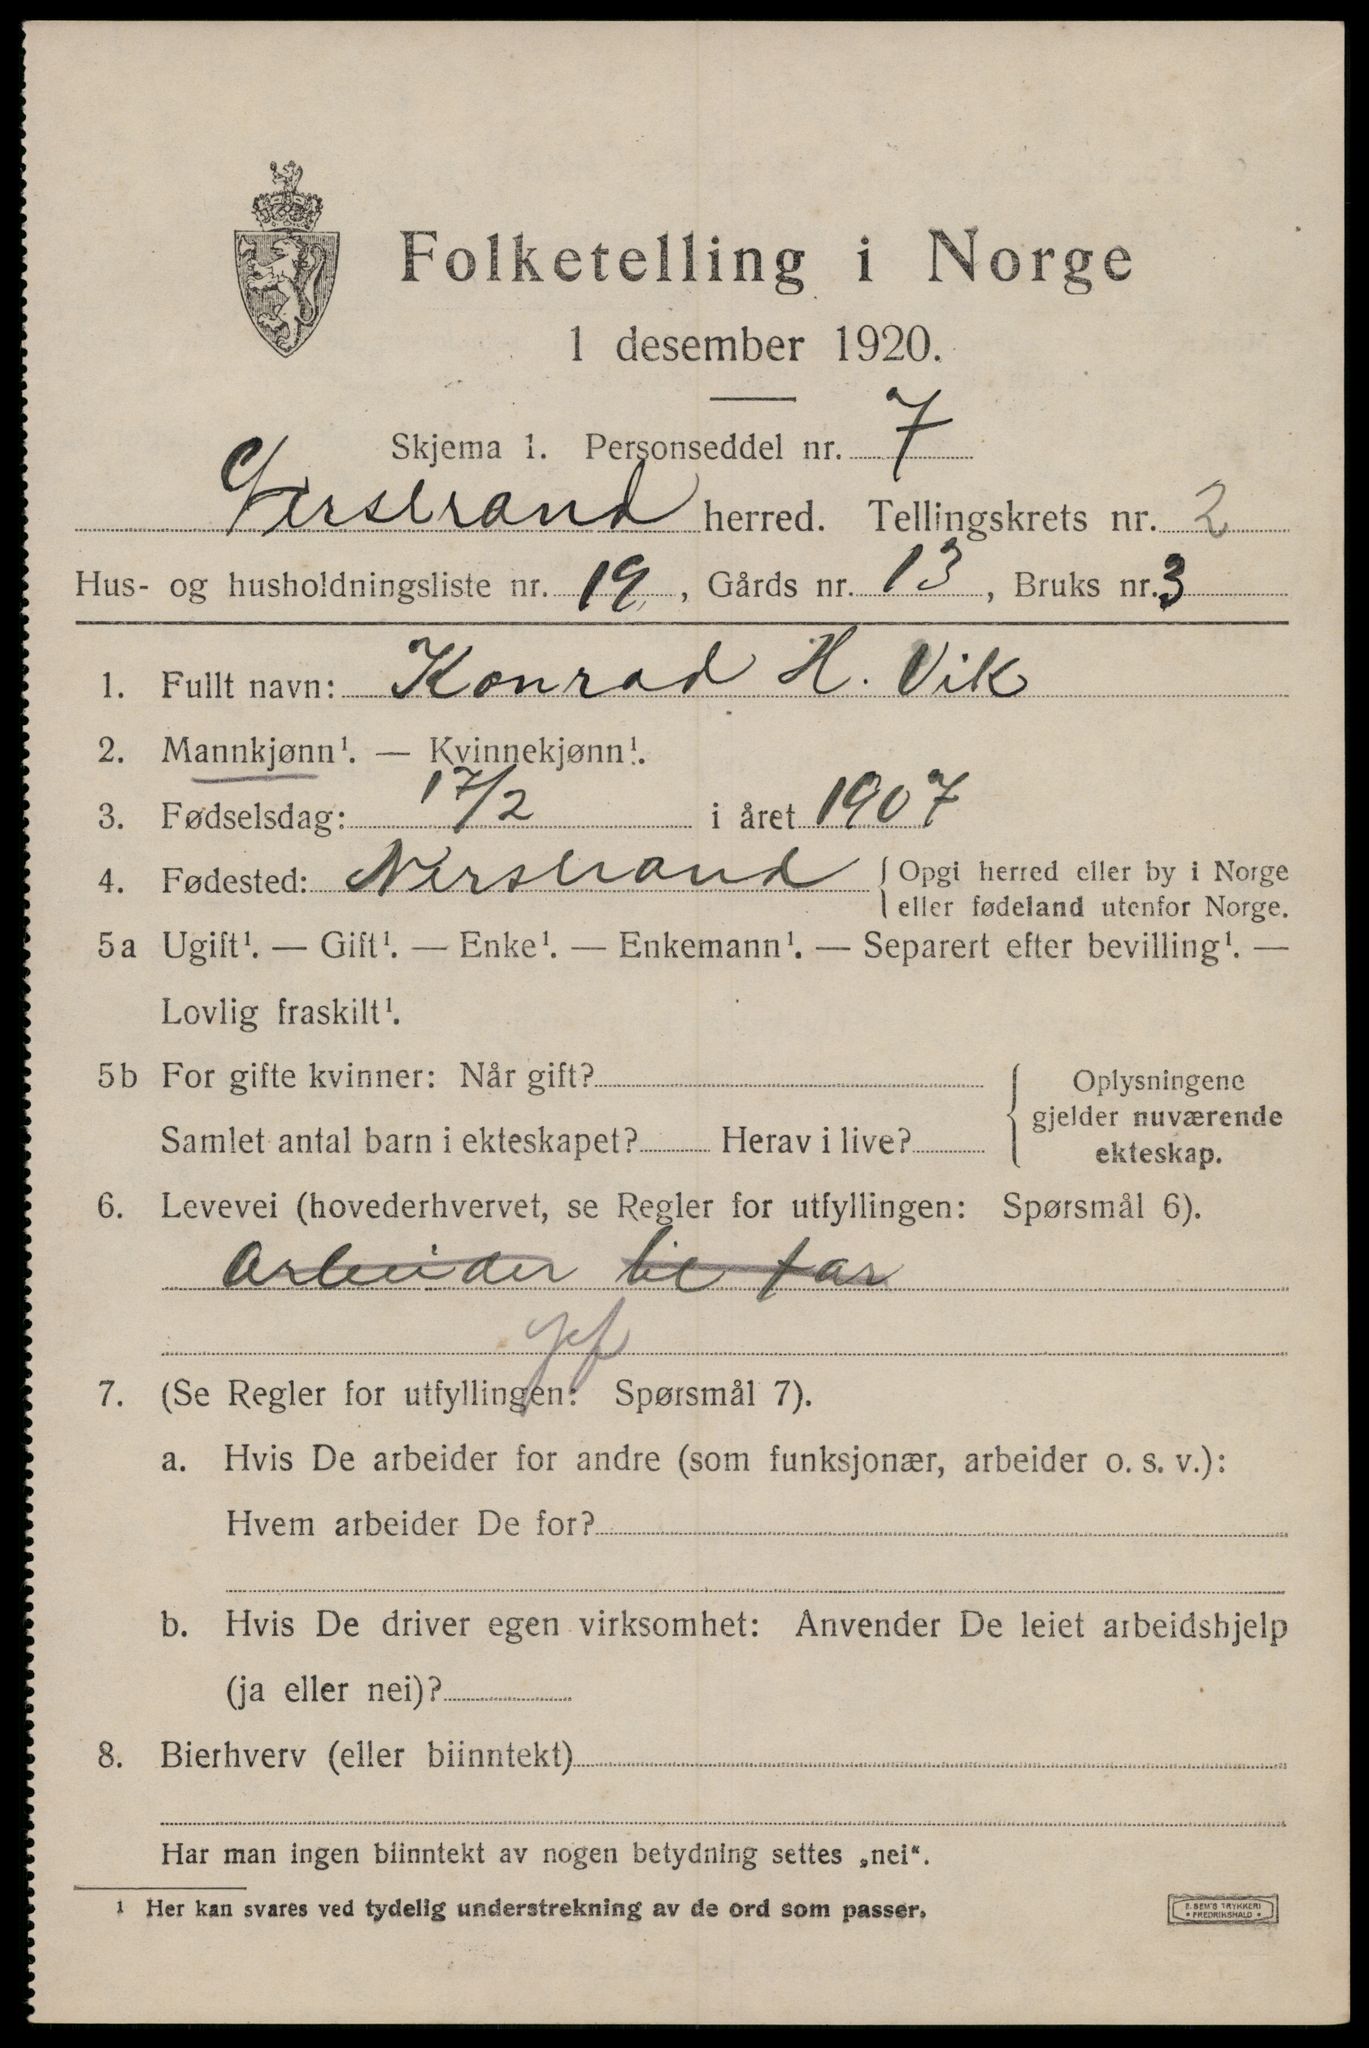 Folketelling i Norge
1 desember 1920.
Skjema 1. Personseddel nr. 7
Nerstrand herred. Tellingskrets nr. 2
Hus- og husholdningsliste nr. 19, Gårds nr. 13, Bruks nr. 3
1. Fullt navn: Konrad H. Vik
2. Mannkjønn¹. — Kvinnekjønn¹.
3. Fødselsdag: 17/2 i året 1907
4. Fødested: Nerstrand { Opgi herred eller by i Norge
eller fødeland utenfor Norge.
5a Ugift¹. — Gift¹. — Enke¹. — Enkemann¹. — Separert efter bevilling¹. —
Lovlig fraskilt¹.
5b For gifte kvinner: Når gift?
Samlet antal barn i ekteskapet? Herav i live?
{ Oplysningene
gjelder nuværende
ekteskap.
6. Levevei (hovederhvervet, se Regler for utfyllingen: Spørsmål 6).
Arbeider til far
7. (Se Regler for utfyllingen: Spørsmål 7).
a. Hvis De arbeider for andre (som funksjonær, arbeider o. s. v.):
Hvem arbeider De for?
b. Hvis De driver egen virksomhet: Anvender De leiet arbeidshjelp
(ja eller nei)?
8. Bierhverv (eller biinntekt)
Har man ingen biinntekt av nogen betydning settes „nei".
1 Her kan svares ved tydelig understrekning av de ord som passer.
E. SEM'S TRYKKERI
• FREDRIKSHALD •